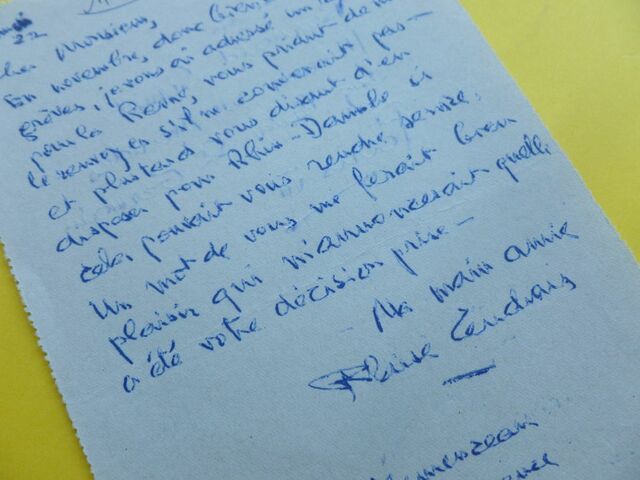 22
Cher Monsieur,
En novembre, donc
grèves, je vous ai adressé un
pour la Revue, vous priant de me
le renvoyer s'il ne convenait pas —
et plus tard vous disant d'en
disposer pour Rhin-Danube si
cela pouvait vous rendre service.
Un mot de vous me ferait bien
plaisir qui m'annoncerait quelle
a été votre décision prise —
Ma main amie